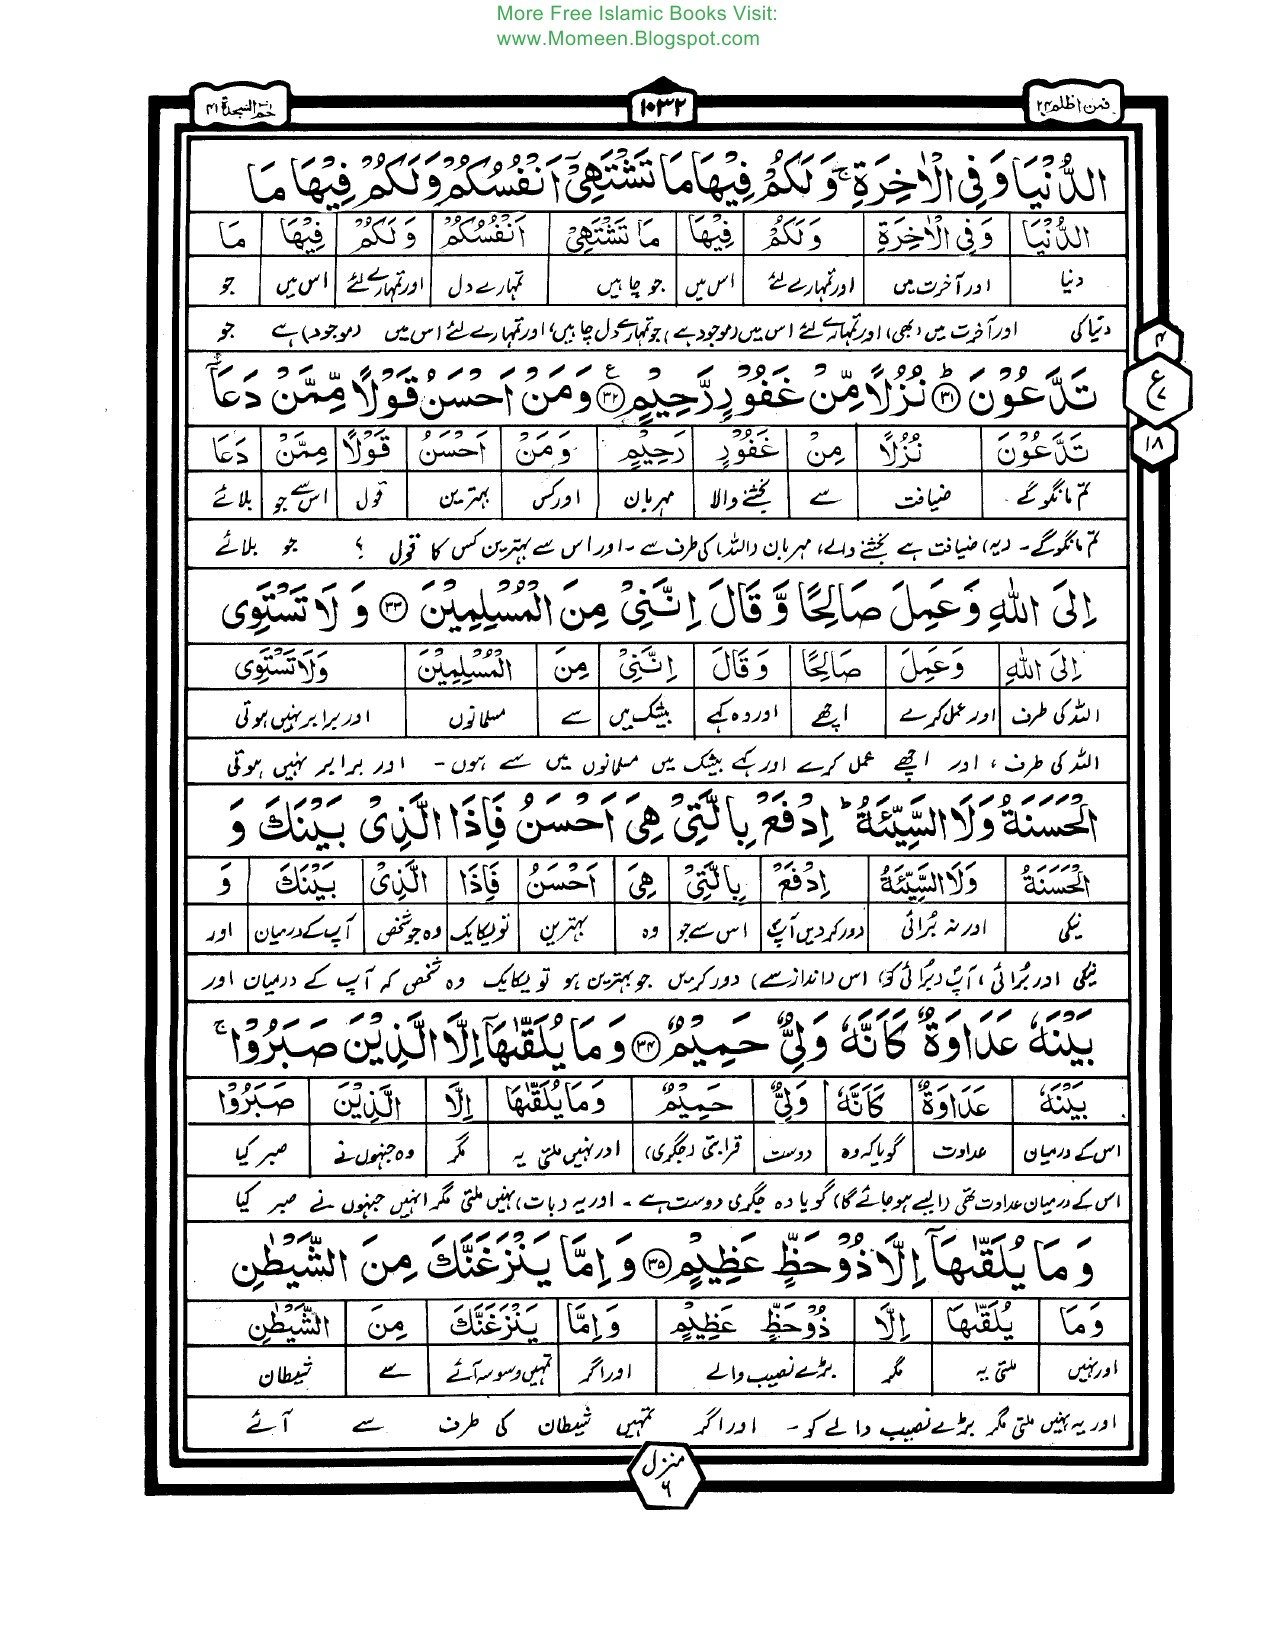 More Free Islamic Books Visit:
www.Momeen.Blogspot.com
فمن اظلم ۲۴
۱۰۳۲
حٰم السجدة ۴۱
الدُّنْيَا وَفِی الْاٰخِرَةِ ۚ وَلَكُمْ فِيْهَا مَا تَشْتَهِیْۤ اَنْفُسُكُمْ وَلَكُمْ فِيْهَا مَا
الدُّنْيَا وَفِی الْاٰخِرَةِ وَلَكُمْ فِيْهَا مَا تَشْتَهِیْۤ اَنْفُسُكُمْ وَلَكُمْ فِيْهَا مَا
دنیا اور آخرت میں اور تمہارے لئے اس میں جو چاہیں تمہارے دل اور تمہارے لئے اس میں جو
دنیا کی اور آخرت میں (بھی) اور تمہارے لئے اس میں (موجود ہے) جو تمہارے دل چاہیں، اور تمہارے لئے اس میں (موجود) ہے جو
۴
ع
۷
۱۸
تَدَّعُوْنَ ؕ۳۱ نُزُلًا مِّنْ غَفُوْرٍ رَّحِيْمٍ ۳۲ۧ وَمَنْ اَحْسَنُ قَوْلًا مِّمَّنْ دَعَاۤ
تَدَّعُوْنَ نُزُلًا مِنْ غَفُوْرٍ رَحِيْمٍ وَمَنْ اَحْسَنُ قَوْلًا مِمَّنْ دَعَا
تم مانگو گے ضیافت سے بخشنے والا مہربان اور کس بہترین قول اس سے جو بلائے
تم مانگو گے۔ (یہ) ضیافت ہے بخشنے والے، مہربان (اللہ) کی طرف سے۔ اور اس سے بہترین کس کا قول ؟ جو بلائے
اِلَى اللّٰهِ وَعَمِلَ صَالِحًا وَّقَالَ اِنَّنِیْ مِنَ الْمُسْلِمِيْنَ ۳۳ وَلَا تَسْتَوِی
اِلَى اللّٰهِ وَعَمِلَ صَالِحًا وَقَالَ اِنَّنِیْ مِنَ الْمُسْلِمِيْنَ وَلَا تَسْتَوِی
اللہ کی طرف اور عمل کرے اچھے اور وہ کہے بیشک میں سے مسلمانوں اور برابر نہیں ہوتی
اللہ کی طرف، اور اچھے عمل کرے اور کہے بیشک میں مسلمانوں میں سے ہوں۔ اور برابر نہیں ہوتی
الْحَسَنَةُ وَلَا السَّيِّئَةُ ؕ اِدْفَعْ بِالَّتِیْ هِیَ اَحْسَنُ فَاِذَا الَّذِیْ بَيْنَكَ وَ
الْحَسَنَةُ وَلَا السَّيِّئَةُ اِدْفَعْ بِالَّتِیْ هِیَ اَحْسَنُ فَاِذَا الَّذِیْ بَيْنَكَ وَ
نیکی اور نہ بُرائی دور کردیں آپؐ اس سے جو وہ بہترین تو یکایک وہ جو شخص آپ کے درمیان اور
نیکی اور بُرائی، آپؐ (بُرائی کو) اس (انداز سے) دور کریں جو بہترین ہو تو یکایک وہ شخص کہ آپ کے درمیان اور
بَيْنَهٗ عَدَاوَةٌ كَاَنَّهٗ وَلِیٌّ حَمِيْمٌ ۳۴ وَمَا يُلَقّٰىهَاۤ اِلَّا الَّذِيْنَ صَبَرُوْا ۚ
بَيْنَهٗ عَدَاوَةٌ كَاَنَّهٗ وَلِیٌّ حَمِيْمٌ وَمَا يُلَقّٰىهَا اِلَّا الَّذِيْنَ صَبَرُوْا
اس کے درمیان عداوت گویا کہ وہ دوست قرابتی (جگری) اور نہیں ملتی یہ مگر وہ جنہوں نے صبر کیا
اس کے درمیان عداوت تھی (ایسے ہو جائے گا) گویا وہ جگری دوست ہے۔ اور یہ (بات) نہیں ملتی مگر انہیں جنہوں نے صبر کیا
وَمَا يُلَقّٰىهَاۤ اِلَّا ذُوْ حَظٍّ عَظِيْمٍ ۳۵ وَاِمَّا يَنْزَغَنَّكَ مِنَ الشَّيْطٰنِ
وَمَا يُلَقّٰىهَا اِلَّا ذُوْ حَظٍّ عَظِيْمٍ وَاِمَّا يَنْزَغَنَّكَ مِنَ الشَّيْطٰنِ
اور نہیں ملتی یہ مگر بڑے نصیب والے اور اگر تمہیں وسوسہ آئے سے شیطان
اور یہ نہیں ملتی مگر بڑے نصیب والے کو۔ اور اگر تمہیں شیطان کی طرف سے آئے
منزل
۶